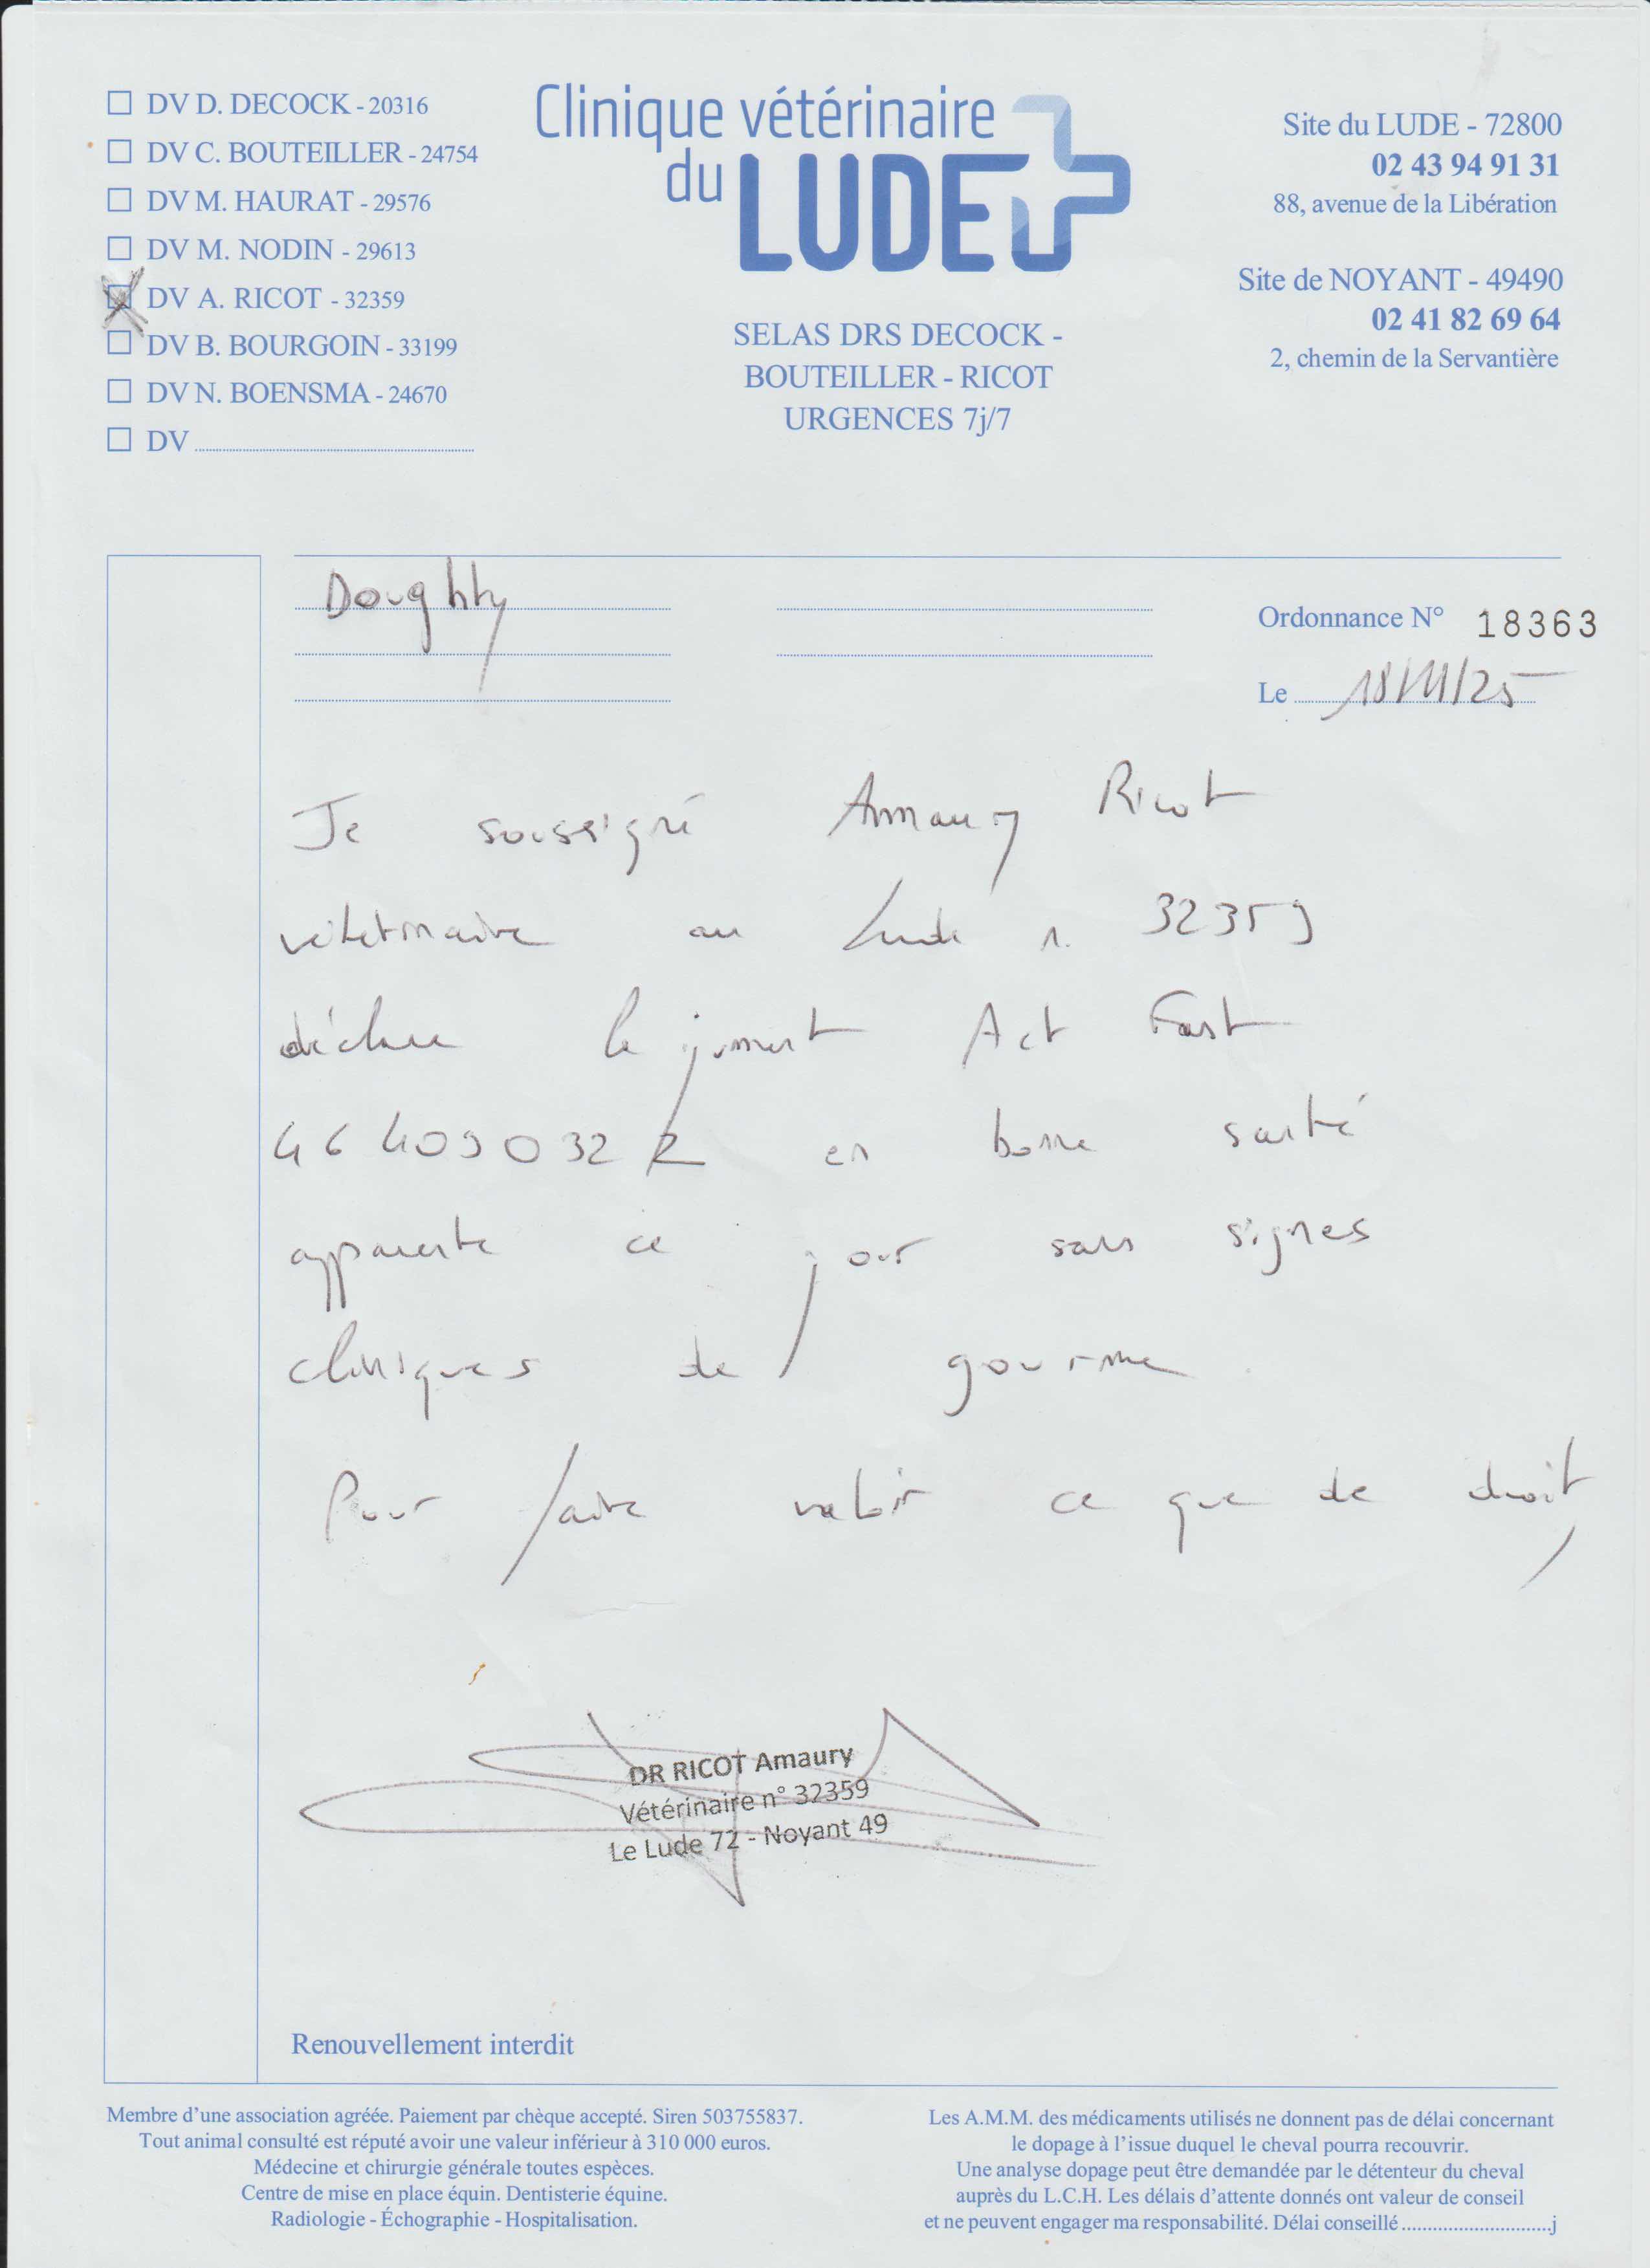 DV D. DECOCK - 20316
DV C. BOUTEILLER - 24754
DV M. HAURAT - 29576
DV M. NODIN - 29613
DV A. RICOT - 32359
DV B. BOURGOIN - 33199
DV N. BOENSMA - 24670
DV
Clinique vétérinaire
du LUDE
SELAS DRS DECOCK -
BOUTEILLER - RICOT
URGENCES 7j/7
Site du LUDE - 72800
02 43 94 91 31
88, avenue de la Libération
Site de NOYANT - 49490
02 41 82 69 64
2, chemin de la Servantière
Doughty
Ordonnance N° 18363
Le 18/11/25
Je soussigné Amaury Ricot
vétérinaire au Lude n. 32359
déclare la jument Act Fast
46409032 en bonne santé
apparente ce jour sans signes
cliniques de gourme
Pour faire valoir ce que de droit,
DR RICOT Amaury
Vétérinaire n° 32359
Le Lude 72 - Noyant 49
Renouvellement interdit
Membre d'une association agréée. Paiement par chèque accepté. Siren 503755837.
Tout animal consulté est réputé avoir une valeur inférieur à 310 000 euros.
Médecine et chirurgie générale toutes espèces.
Centre de mise en place équin. Dentisterie équine.
Radiologie - Échographie - Hospitalisation.
Les A.M.M. des médicaments utilisés ne donnent pas de délai concernant
le dopage à l'issue duquel le cheval pourra recouvrir.
Une analyse dopage peut être demandée par le détenteur du cheval
auprès du L.C.H. Les délais d'attente donnés ont valeur de conseil
et ne peuvent engager ma responsabilité. Délai conseillé j